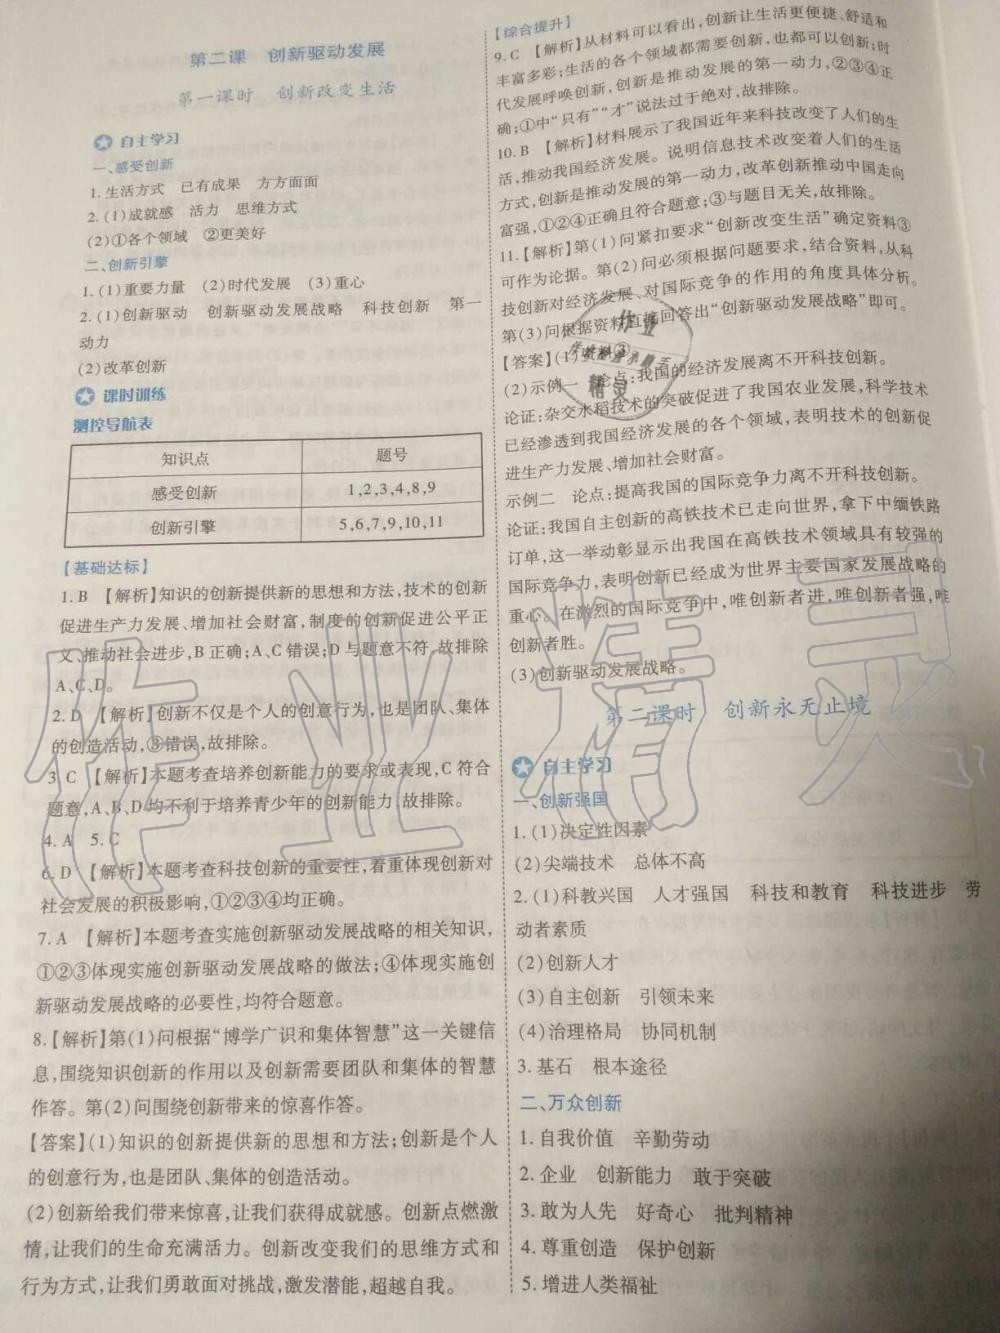 第二课　创新驱动发展
第一课时　创新改变生活
自主学习
一、感受创新
1.生活方式　已有成果　方方面面
2.(1)成就感　活力　思维方式
(2)①各个领域　②更美好
二、创新引擎
1.(1)重要力量　(2)时代发展　(3)重心
2.(1)创新驱动　创新驱动发展战略　科技创新　第一
动力
(2)改革创新
课时训练
测控导航表
知识点　题号
感受创新　1,2,3,4,8,9
创新引擎　5,6,7,9,10,11
【基础达标】
1.B　【解析】知识的创新提供新的思想和方法,技术的创新
促进生产力发展、增加社会财富,制度的创新促进公平正
义、推动社会进步,B正确;A、C错误;D与题意不符,故排除
A、C、D。
2.D　【解析】创新不仅是个人的创意行为,也是团队、集体
的创造活动,③错误,故排除。
3.C　【解析】本题考查培养创新能力的要求或表现,C符合
题意,A、B、D均不利于培养青少年的创新能力,故排除。
4.A　5.C
6.D　【解析】本题考查科技创新的重要性,着重体现创新对
社会发展的积极影响,①②③④均正确。
7.A　【解析】本题考查实施创新驱动发展战略的相关知识,
①②③体现实施创新驱动发展战略的做法;④体现实施创
新驱动发展战略的必要性,均符合题意。
8.【解析】第(1)问根据“博学广识和集体智慧”这一关键信
息,围绕知识创新的作用以及创新需要团队和集体的智慧
作答。第(2)问围绕创新带来的惊喜作答。
【答案】(1)知识的创新提供新的思想和方法;创新是个人
的创意行为,也是团队、集体的创造活动。
(2)创新给我们带来惊喜,让我们获得成就感。创新点燃激
情,让我们的生命充满活力。创新改变我们的思维方式和
行为方式,让我们勇敢面对挑战,激发潜能,超越自我。
【综合提升】
9.C　【解析】从材料可以看出,创新让生活更便捷、舒适和
丰富多彩;生活的各个领域都需要创新,也都可以创新;时
代发展呼唤创新,创新是推动发展的第一动力,②③④正
确;①中“只有”“才”说法过于绝对,故排除。
10.B　【解析】材料展示了我国近年来科技改变了人们的生
活,推动我国经济发展。说明信息技术改变着人们的生活
方式,创新是推动发展的第一动力,改革创新推动中国走向
富强,①②④正确且符合题意;③与题目无关,故排除。
11.【解析】第(1)问紧扣要求“创新改变生活”确定资料③
可作为论据。第(2)问必须根据问题要求,结合资料,从科
技创新对经济发展、对国际竞争的作用的角度具体分析。
第(3)问根据资料直接回答出“创新驱动发展战略”即可。
【答案】(1)资料③
(2)示例一　论点:我国的经济发展离不开科技创新。
论证:杂交水稻技术的突破促进了我国农业发展,科学技术
已经渗透到我国经济发展的各个领域,表明技术的创新促
进生产力发展、增加社会财富。
示例二　论点:提高我国的国际竞争力离不开科技创新。
论证:我国自主创新的高铁技术已走向世界,拿下中缅铁路
订单,这一举动彰显示出我国在高铁技术领域具有较强的
国际竞争力,表明创新已经成为世界主要国家发展战略的
重心。在激烈的国际竞争中,唯创新者进,唯创新者强,唯
创新者胜。
(3)创新驱动发展战略。
第二课时　创新永无止境
自主学习
一、创新强国
1.(1)决定性因素
(2)尖端技术　总体不高
2.(1)科教兴国　人才强国　科技和教育　科技进步　劳
动者素质
(2)创新人才
(3)自主创新　引领未来
(4)治理格局　协同机制
3.基石　根本途径
二、万众创新
1.自我价值　辛勤劳动
2.企业　创新能力　敢于突破
3.敢为人先　好奇心　批判精神
4.尊重创造　保护创新
5.增进人类福祉
作业
精灵
作业精灵